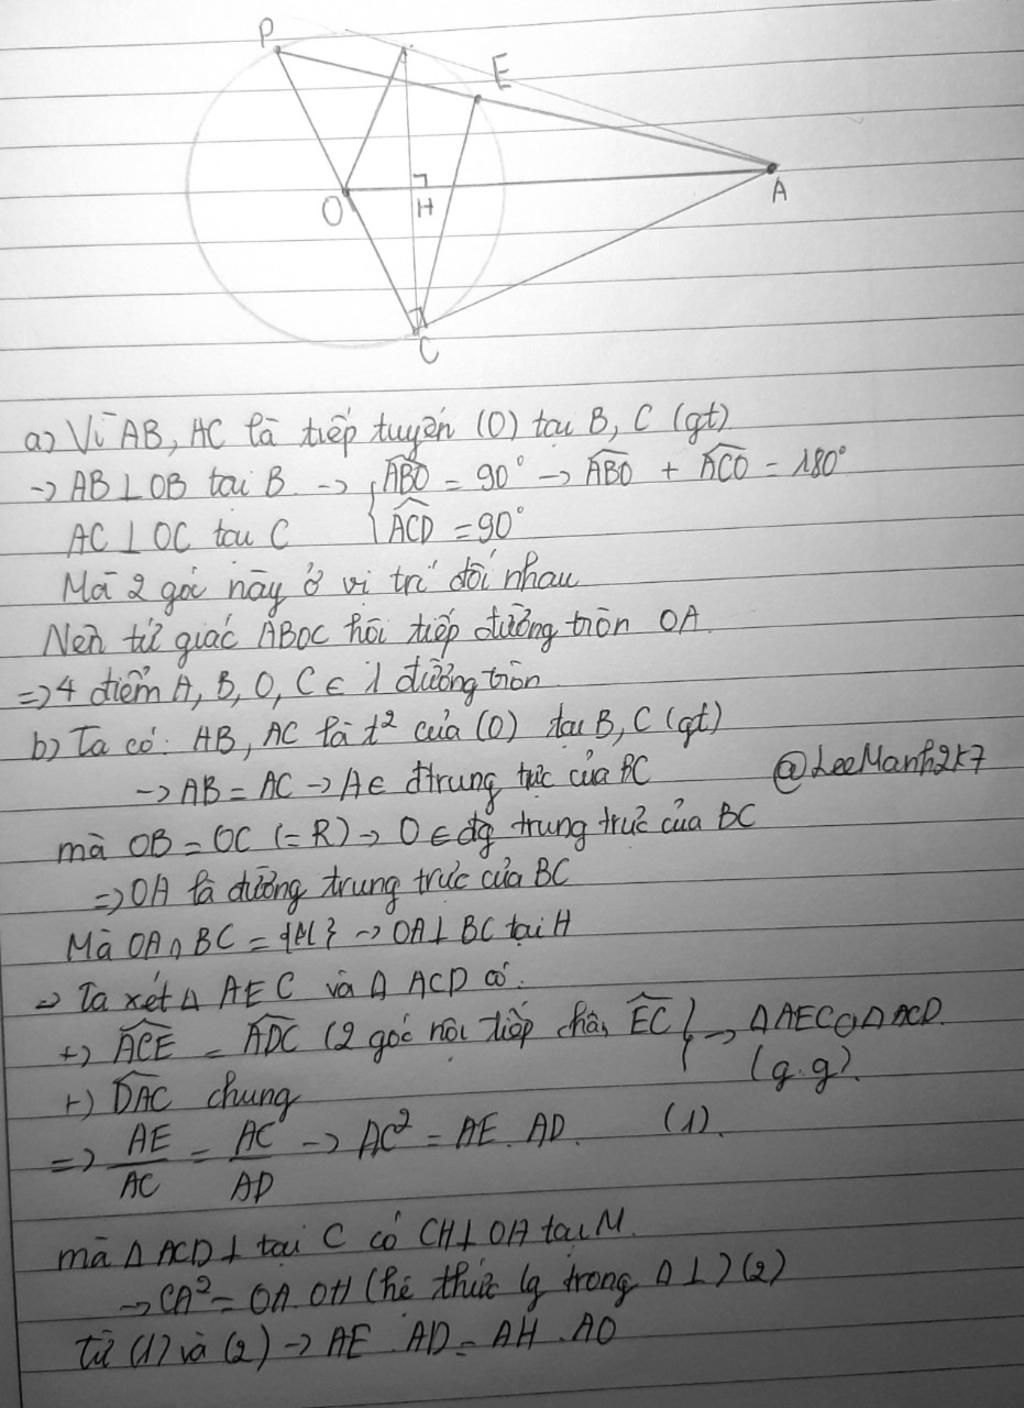 P
E
O
H
A
C
a) Vì AB, AC là tiếp tuyến (O) tại B, C (gt)
-> AB⊥OB tại B. -> { ABO = 90° -> ABO + ACO = 180°
AC⊥OC tại C { ACD = 90°
Mà 2 góc này ở vị trí đối nhau
Nên tứ giác ABOC nội tiếp đường tròn OA
=> 4 điểm A, B, O, C ∈ 1 đường tròn
b) Ta có: AB, AC là t² của (O) tại B, C (gt)
-> AB = AC -> A ∈ đtrung trực của BC
@LeeManh2k7
mà OB = OC (= R) -> O ∈ đg trung trực của BC
=> OA là đường trung trực của BC
Mà OA ∩ BC = {M} -> OA⊥BC tại H
=> Ta xét Δ AEC và Δ ACD có:
+) ACE = ADC (2 góc nội tiếp chắn EC } -> ΔAEC ∽ Δ ACD.
+) DAC chung (g.g).
=> AE/AC = AC/AD -> AC² = AE. AD. (1).
mà Δ ACD⊥ tại C có CH⊥OA tại M.
-> CA² = OA. OH (hệ thức lg trong Δ⊥) (2)
Từ (1) và (2) -> AE. AD = AH. AO